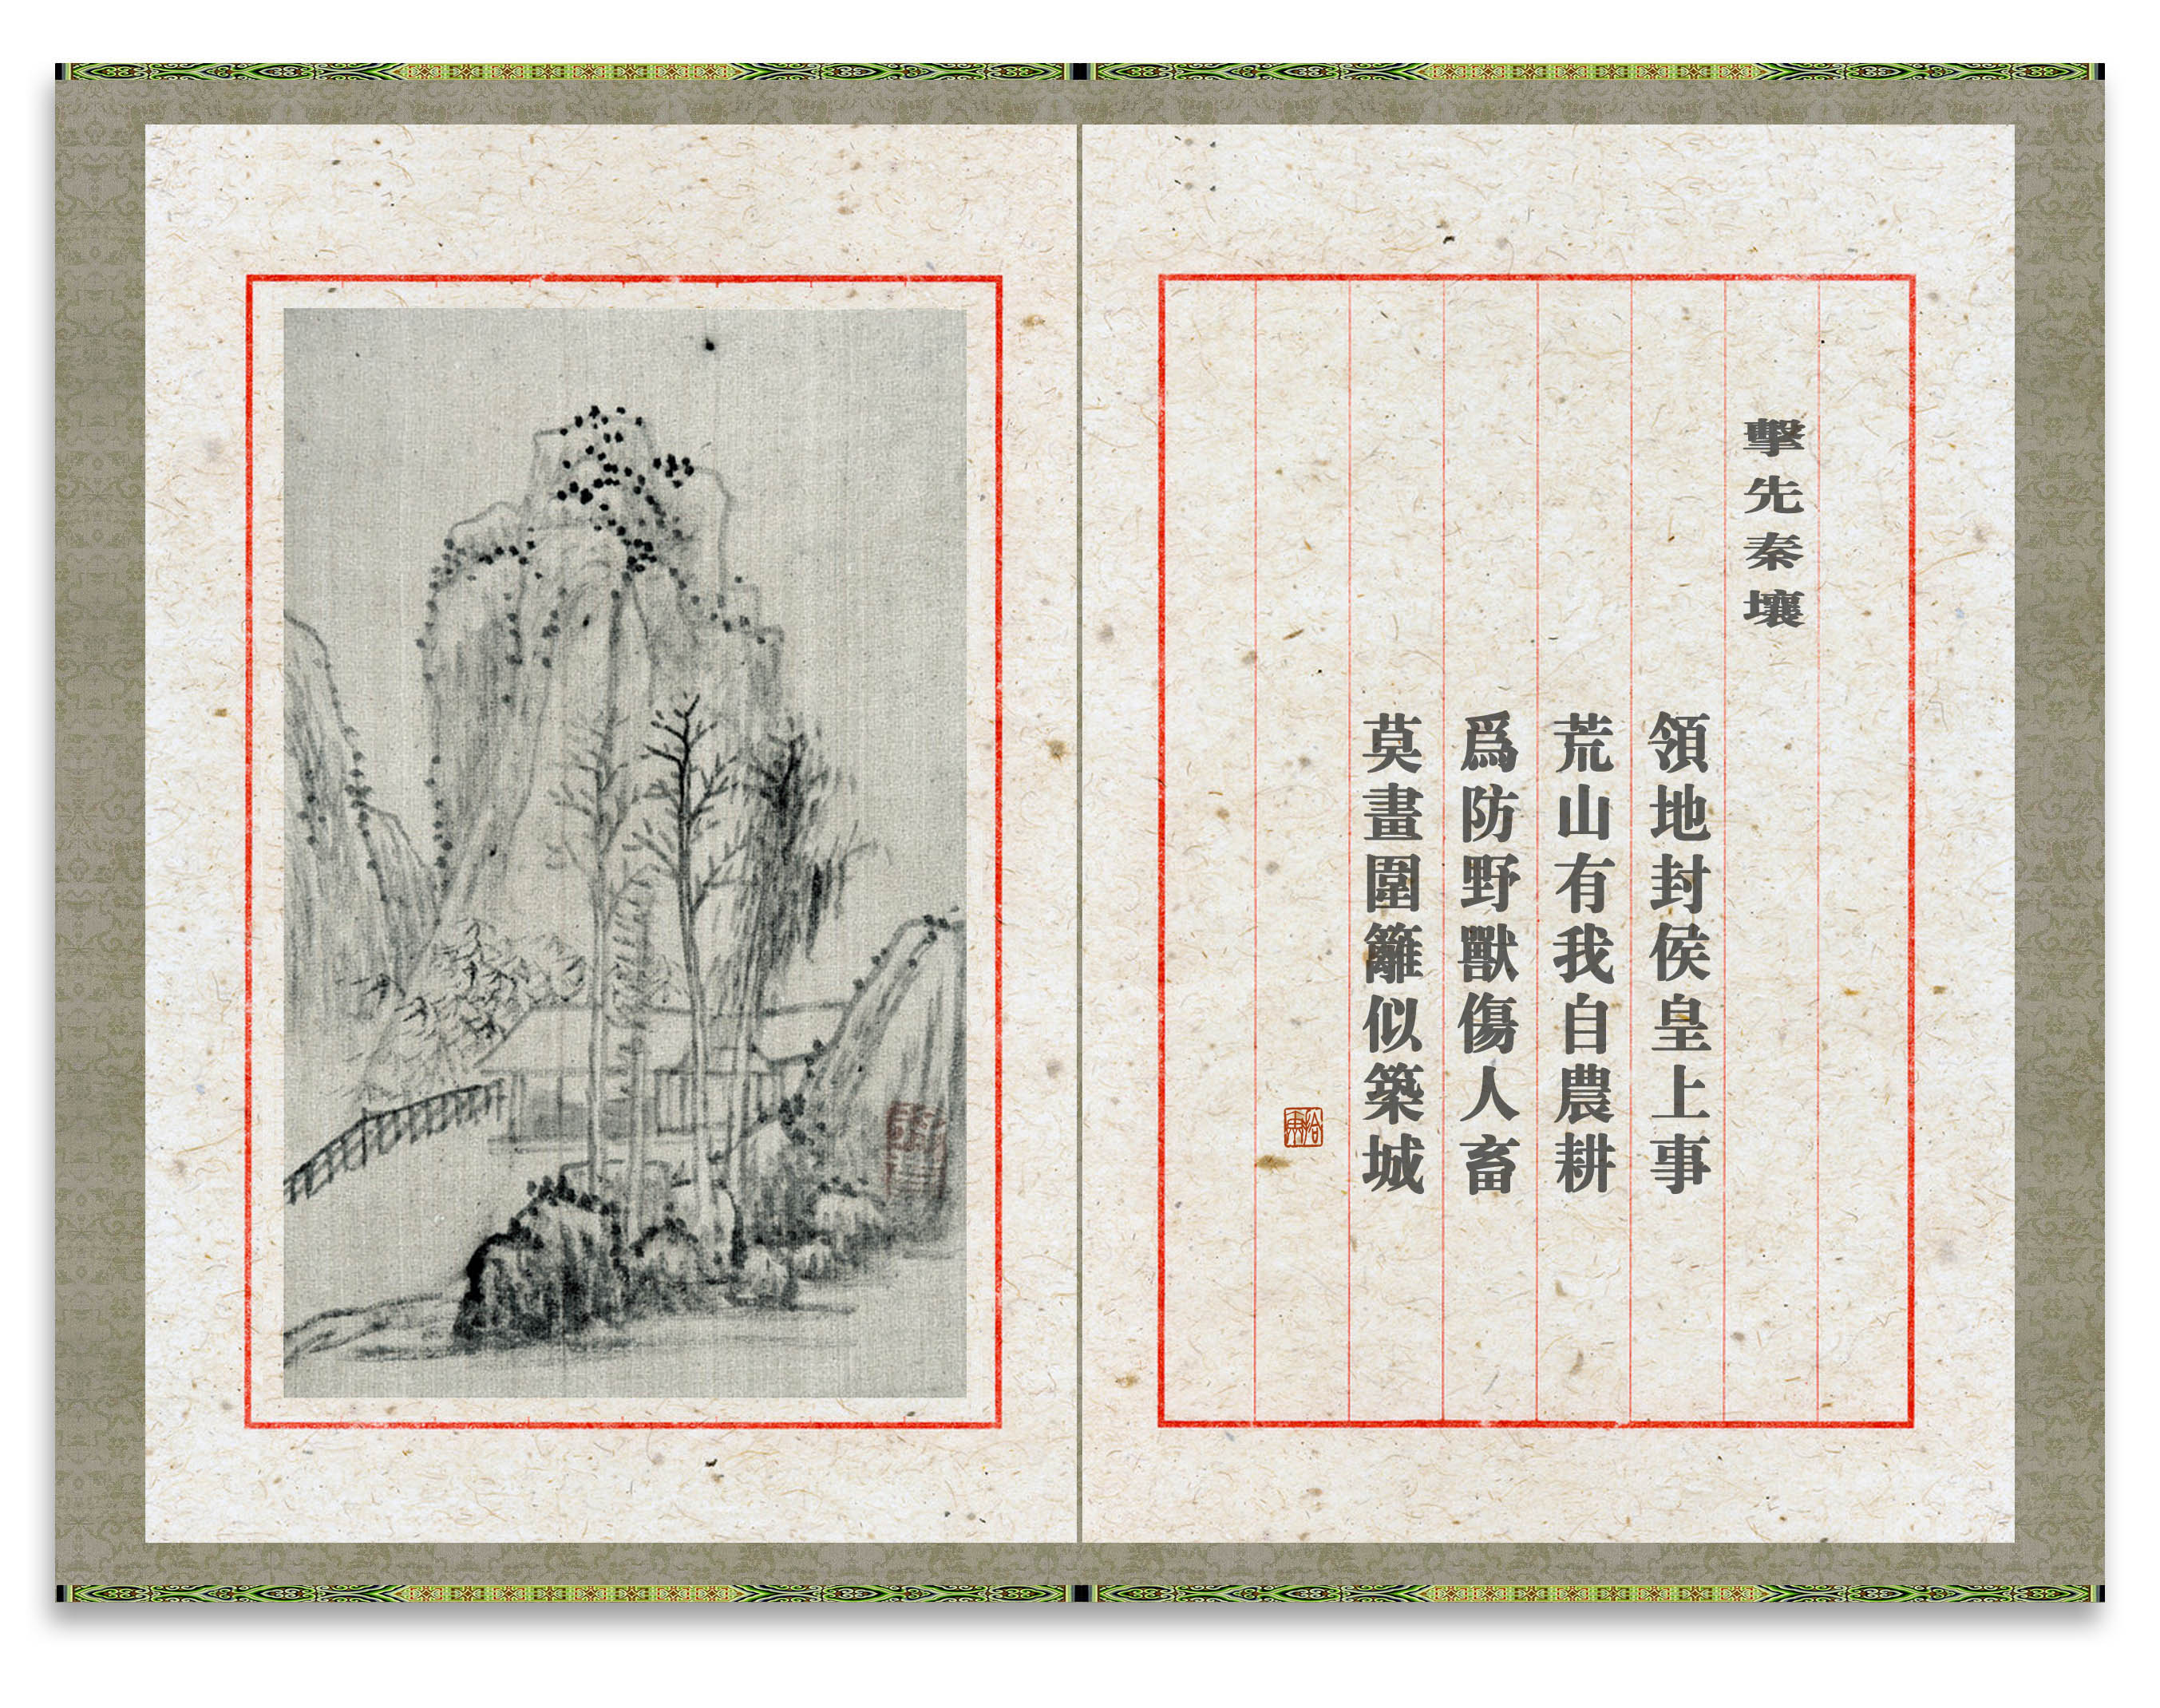 擊先秦壤
領地封侯皇上事
荒山有我自農耕
爲防野獸傷人畜
莫畫圍籬似築城